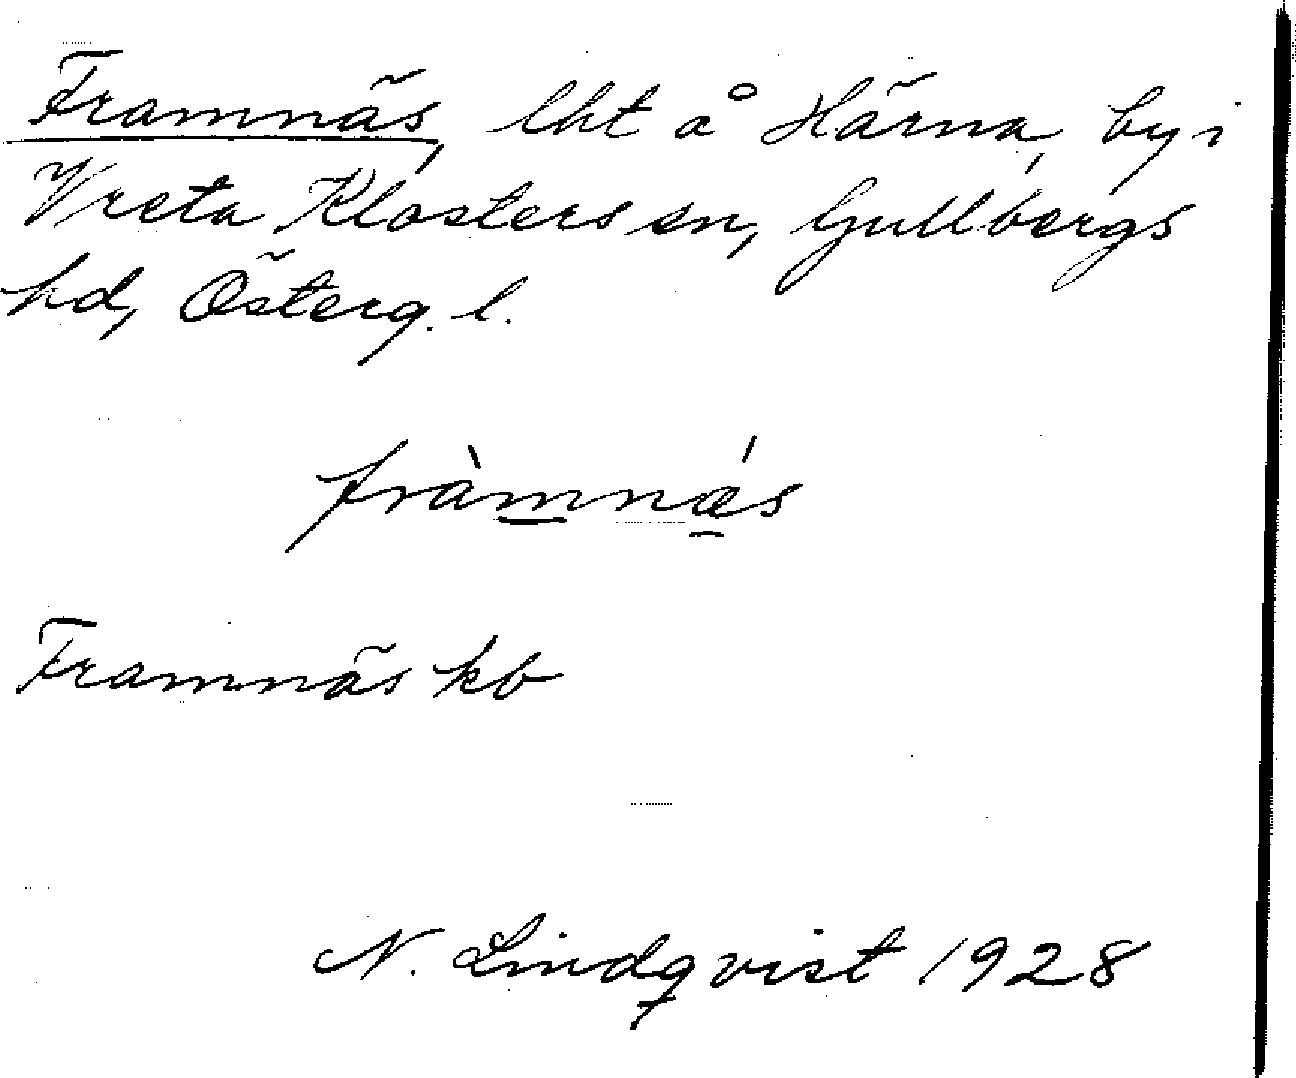 Framnäs, lht å Härna, by i
Vreta Klosters sn, Gullbergs
hd, Österg. l.
fràmnǽs
Framnäs kb
N. Lindqvist 1928